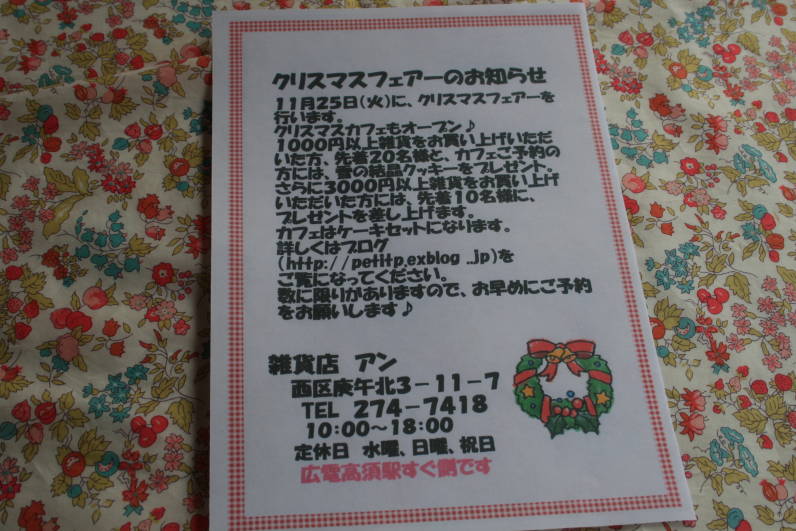 クリスマスフェアーのお知らせ
11月25日(火)に、クリスマスフェアーを
行います。
クリスマスカフェもオープン♪
1000円以上雑貨をお買い上げいただ
いた方、先着20名様と、カフェご予約の
方には、雪の結晶クッキーをプレゼント。
さらに3000円以上雑貨をお買い上げ
いただいた方には、先着10名様に、
プレゼントを差し上げます。
カフェはケーキセットになります。
詳しくはブログ
(http://petitp.exblog..jp)を
ご覧になってください。
数に限りがありますので、お早めにご予約
をお願いします♪
雑貨店 アン
西区庚午北3-11-7
TEL 274-7418
10:00~18:00
定休日 水曜、日曜、祝日
広電高須駅すぐ側です